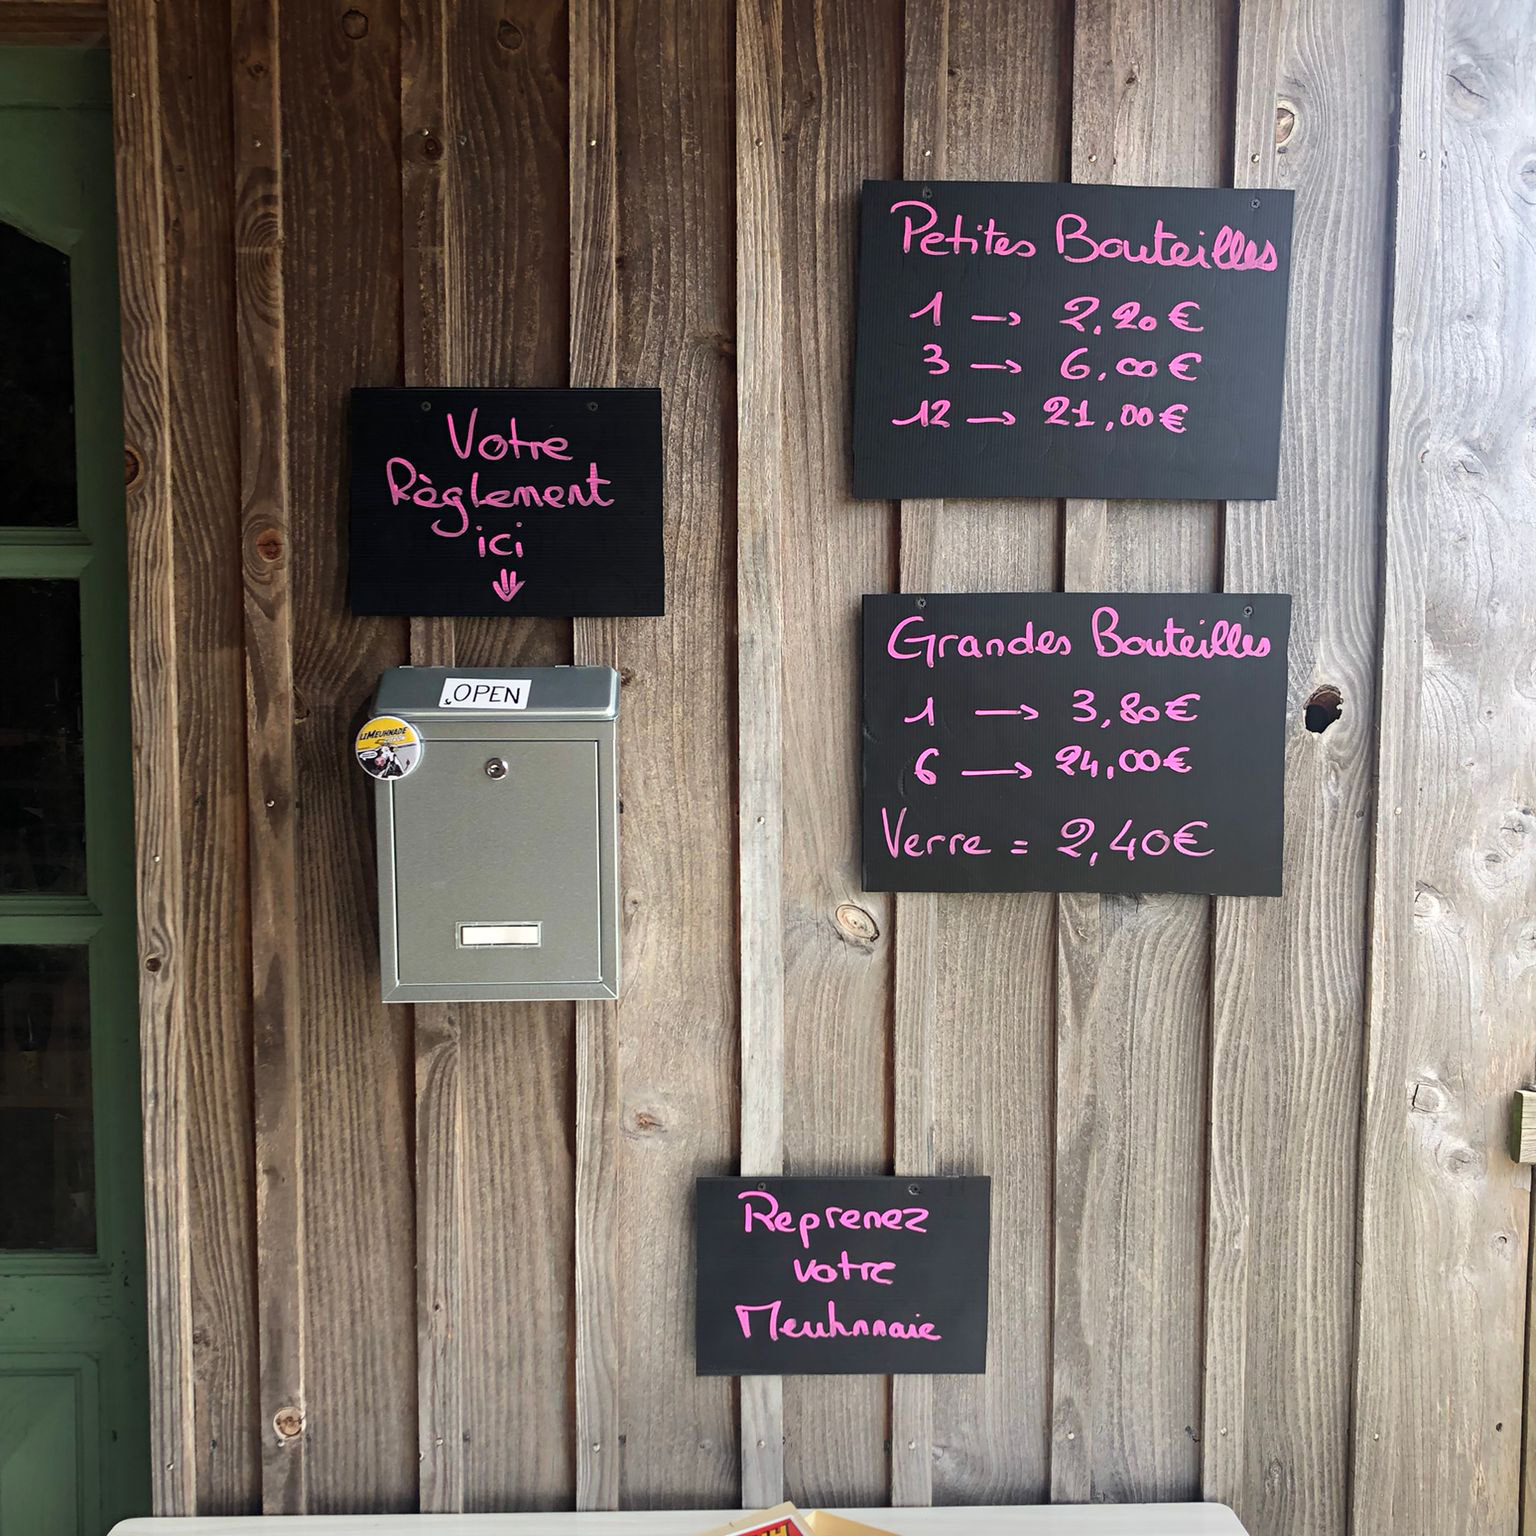 Votre
Règlement
ici
OPEN
LIMEUHNADE
Petites Bouteilles
1 → 2,20€
3 → 6,00€
12 → 21,00€
Grandes Bouteilles
1 → 3,80€
6 → 24,00€
Verre = 2,40€
Reprenez
votre
Meuhnnaie